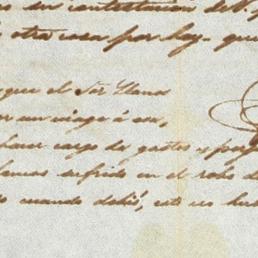 en contestación de
otra cosa por hoy. que
que el Sor. Llanos
un viage á esa,
hace cargo de gastos y por
hemos sufrido en el robo de
cuando debió, esto es